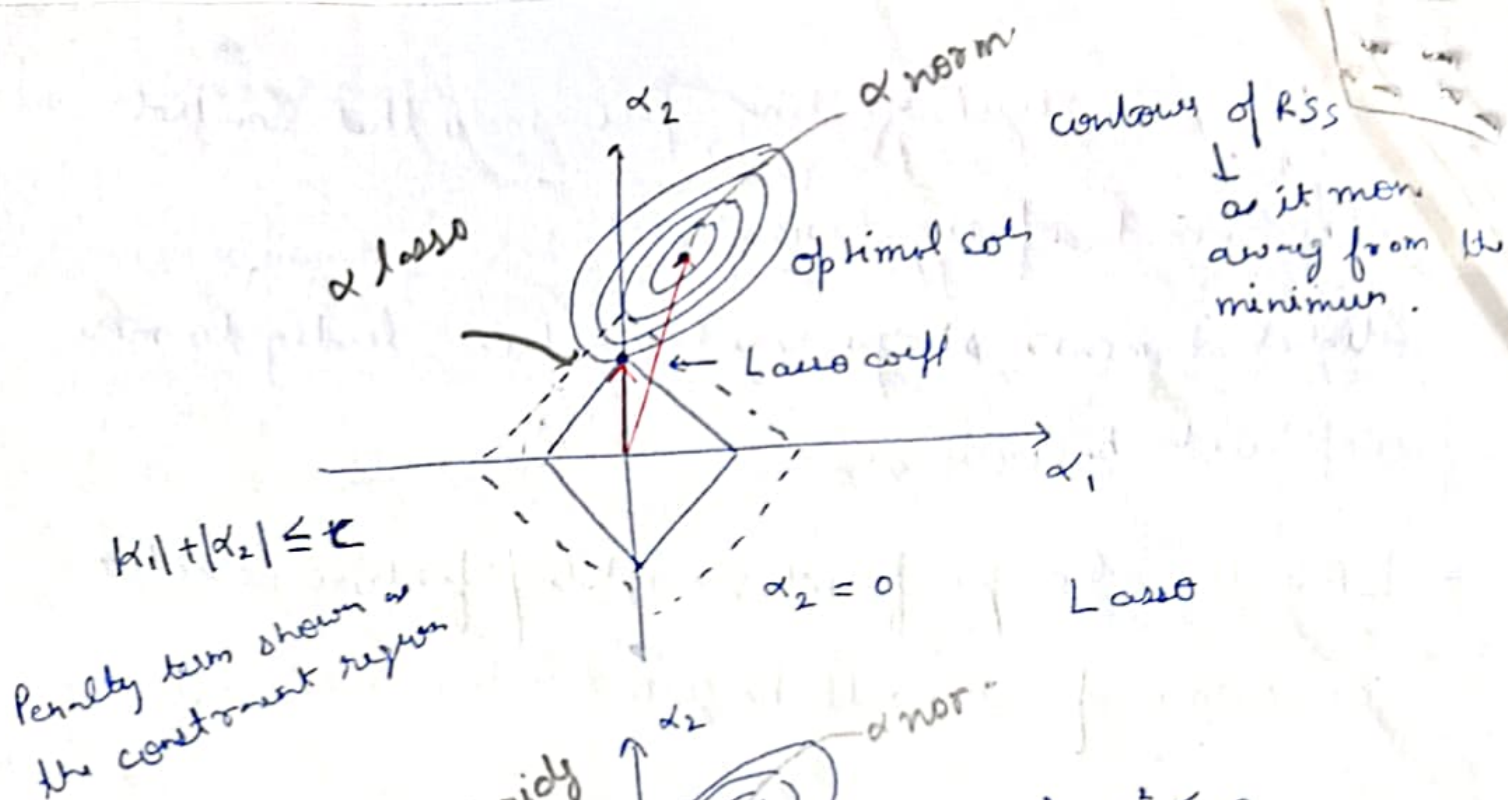 α₂
α norm
contours of RSS
↓
as it mov
away from the
minimum.
α lasso
optimal
← Lasso coeff
α₁
|α₁|+|α₂| ≤ t
α₂ = 0
Lasso
Penalty term shown as
the constraint region
α₂
α nor